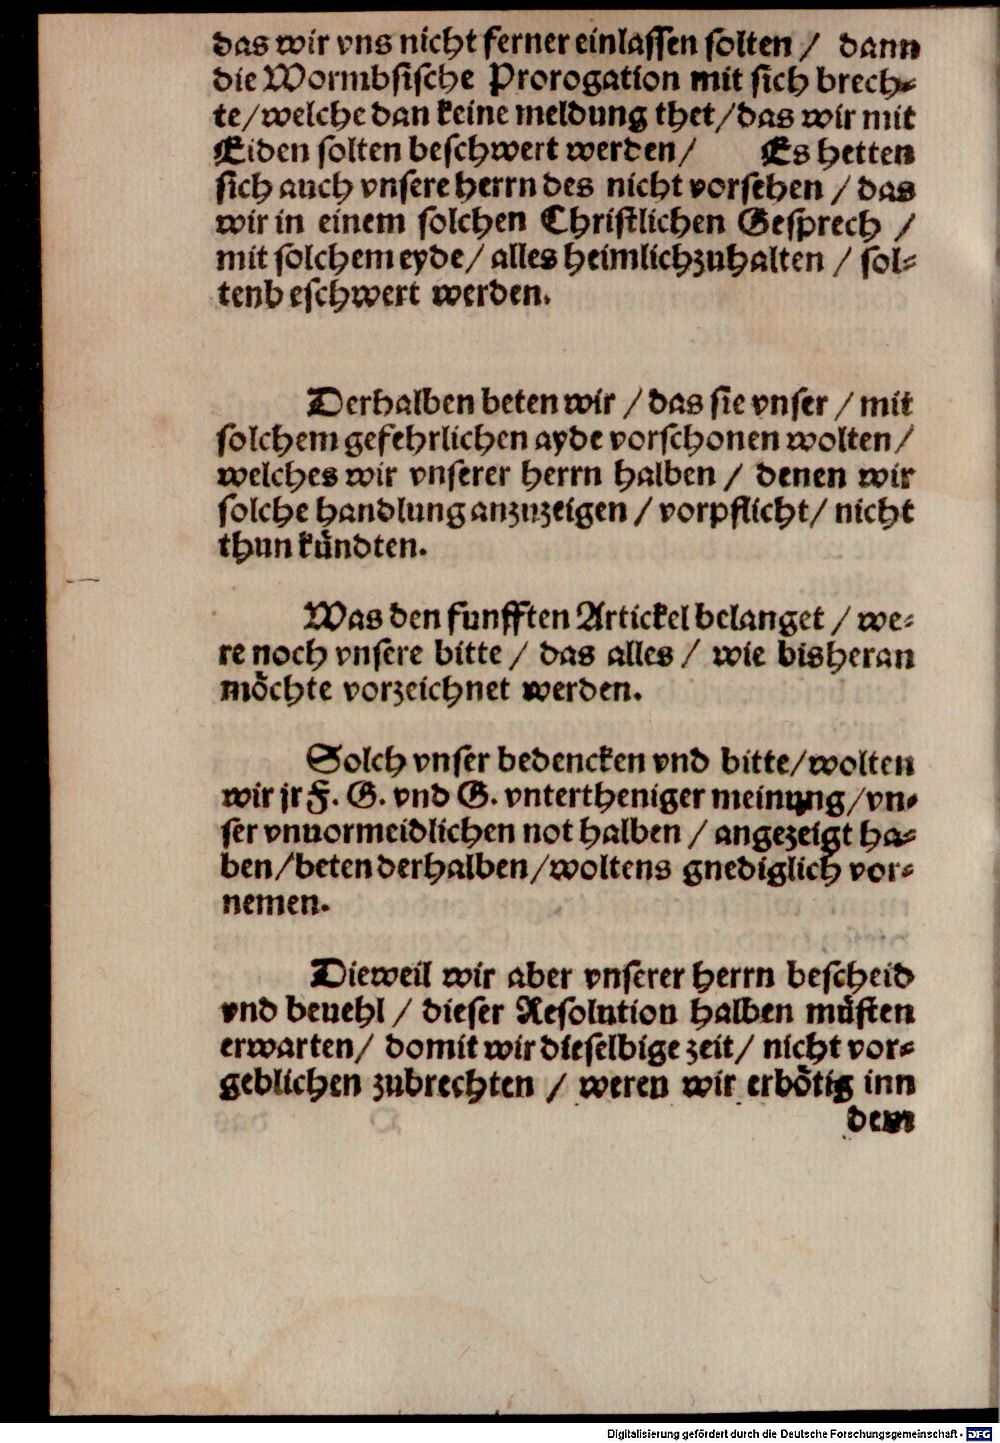 das wir vns nicht ferner einlassen solten / dann
die Wormbsische Prorogation mit sich brech-
te/welche dan keine meldung thet/das wir mit
Eiden solten beschwert werden/ Es hetten
sich auch vnsere herrn des nicht vorsehen / das
wir in einem solchen Christlichen Gesprech /
mit solchem eyde/ alles heimlichzuhalten / sol-
tenb eschwert werden.
Derhalben beten wir / das sie vnser / mit
solchem gefehrlichen ayde vorschonen wolten/
welches wir vnserer herrn halben / denen wir
solche handlung anzuzeigen / vorpflicht/ nicht
thun kündten.
Was den funfften Artickel belanget / we-
re noch vnsere bitte / das alles / wie bisheran
möchte vorzeichnet werden.
Solch vnser bedencken vnd bitte/wolten
wir jr F. G. vnd G. vntertheniger meinung/vn-
ser vnuormeidlichen not halben / angezeigt ha-
ben/beten derhalben/woltens gnediglich vor-
nemen.
Dieweil wir aber vnserer herrn bescheid
vnd beuehl / dieser Resolution halben müsten
erwarten/ domit wir dieselbige zeit/ nicht vor-
geblichen zubrechten / weren wir erbötig inn
dem
Digitalisierung gefördert durch die Deutsche Forschungsgemeinschaft - DFG